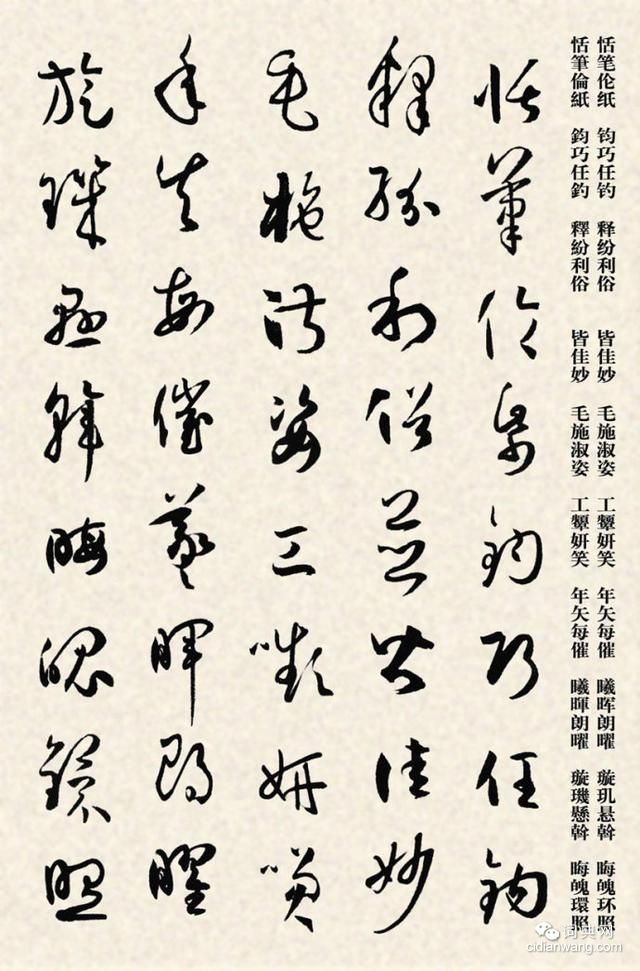 恬笔伦纸 钧巧任钓 释纷利俗 皆佳妙 毛施淑姿 工颦妍笑 年矢每催 曦晖朗曜 璇玑悬斡 晦魄环照
恬筆倫紙 鈞巧任釣 釋紛利俗 皆佳妙 毛施淑姿 工顰妍笑 年矢每催 曦暉朗曜 璇璣懸斡 晦魄環照
恬筆倫紙鈞巧任釣
釋紛利俗並皆佳妙
毛施淑姿工嚬妍咲
年矢每催羲暉朗曜
旋璣懸斡晦魄環照
词典网
cidianwang.com